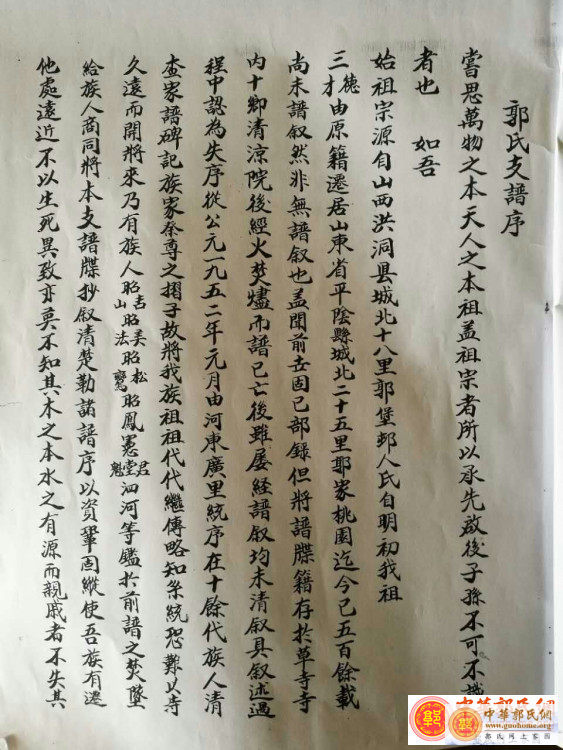 郭氏支譜序
嘗思萬物之本天人之本祖蓋祖宗者所以承先啟後子孫不可不
者也 如吾
始祖宗源自山西洪洞县城北十八里郭堡邨人氏自明初我祖
三德才由原籍遷居山東省平陰縣城北二十五里郭家桃園迄今已五百餘載
尚未譜叙然非無譜叙也盖聞前去固已部録但將譜牒籍存扵草寺寺
内十卿清涼院後經火焚燼而譜已亡後雖屡経譜叙均未清叙具叙述過
程中認為失序從公元一九五二年元月由河東廣里統序在十餘代族人清
查家譜碑記族家奈尊之摺子故將我族祖祖代代繼傳略知系統恐難以寺
久遠而開將來乃有族人昭吉山昭美法昭松鸞昭鳳憲君堂魁泗河等鑑扵前譜之焚墜
給族人商同將本支譜牒抄叙清楚勒諸譜序以資鞏固縱使吾族有遷
他處遠近不以生死異致亦莫不知其木之本水之有源而親戚者不失其
中華郭氏網
中華郭氏網
www.guohome.org
郭氏网上家园